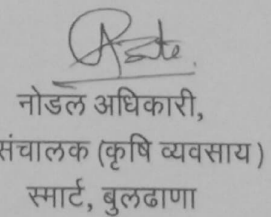 नोडल अधिकारी,
संचालक (कृषि व्यवसाय)
स्मार्ट, बुलढाणा